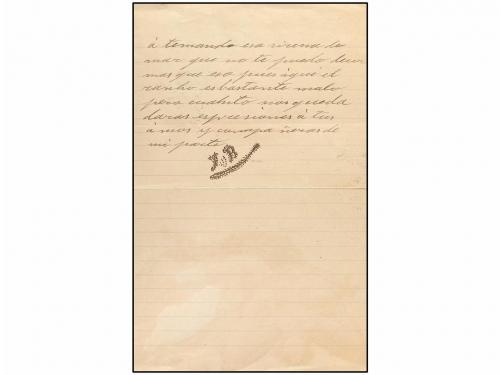 á tomando esa rivena de
mar que no te puedo decir
mas que esa pues aqui el
ranho es bastante malo
pero cuidito nos queda
daras espresiones á tus
ámos y compa ñeras de
mi parte
J B